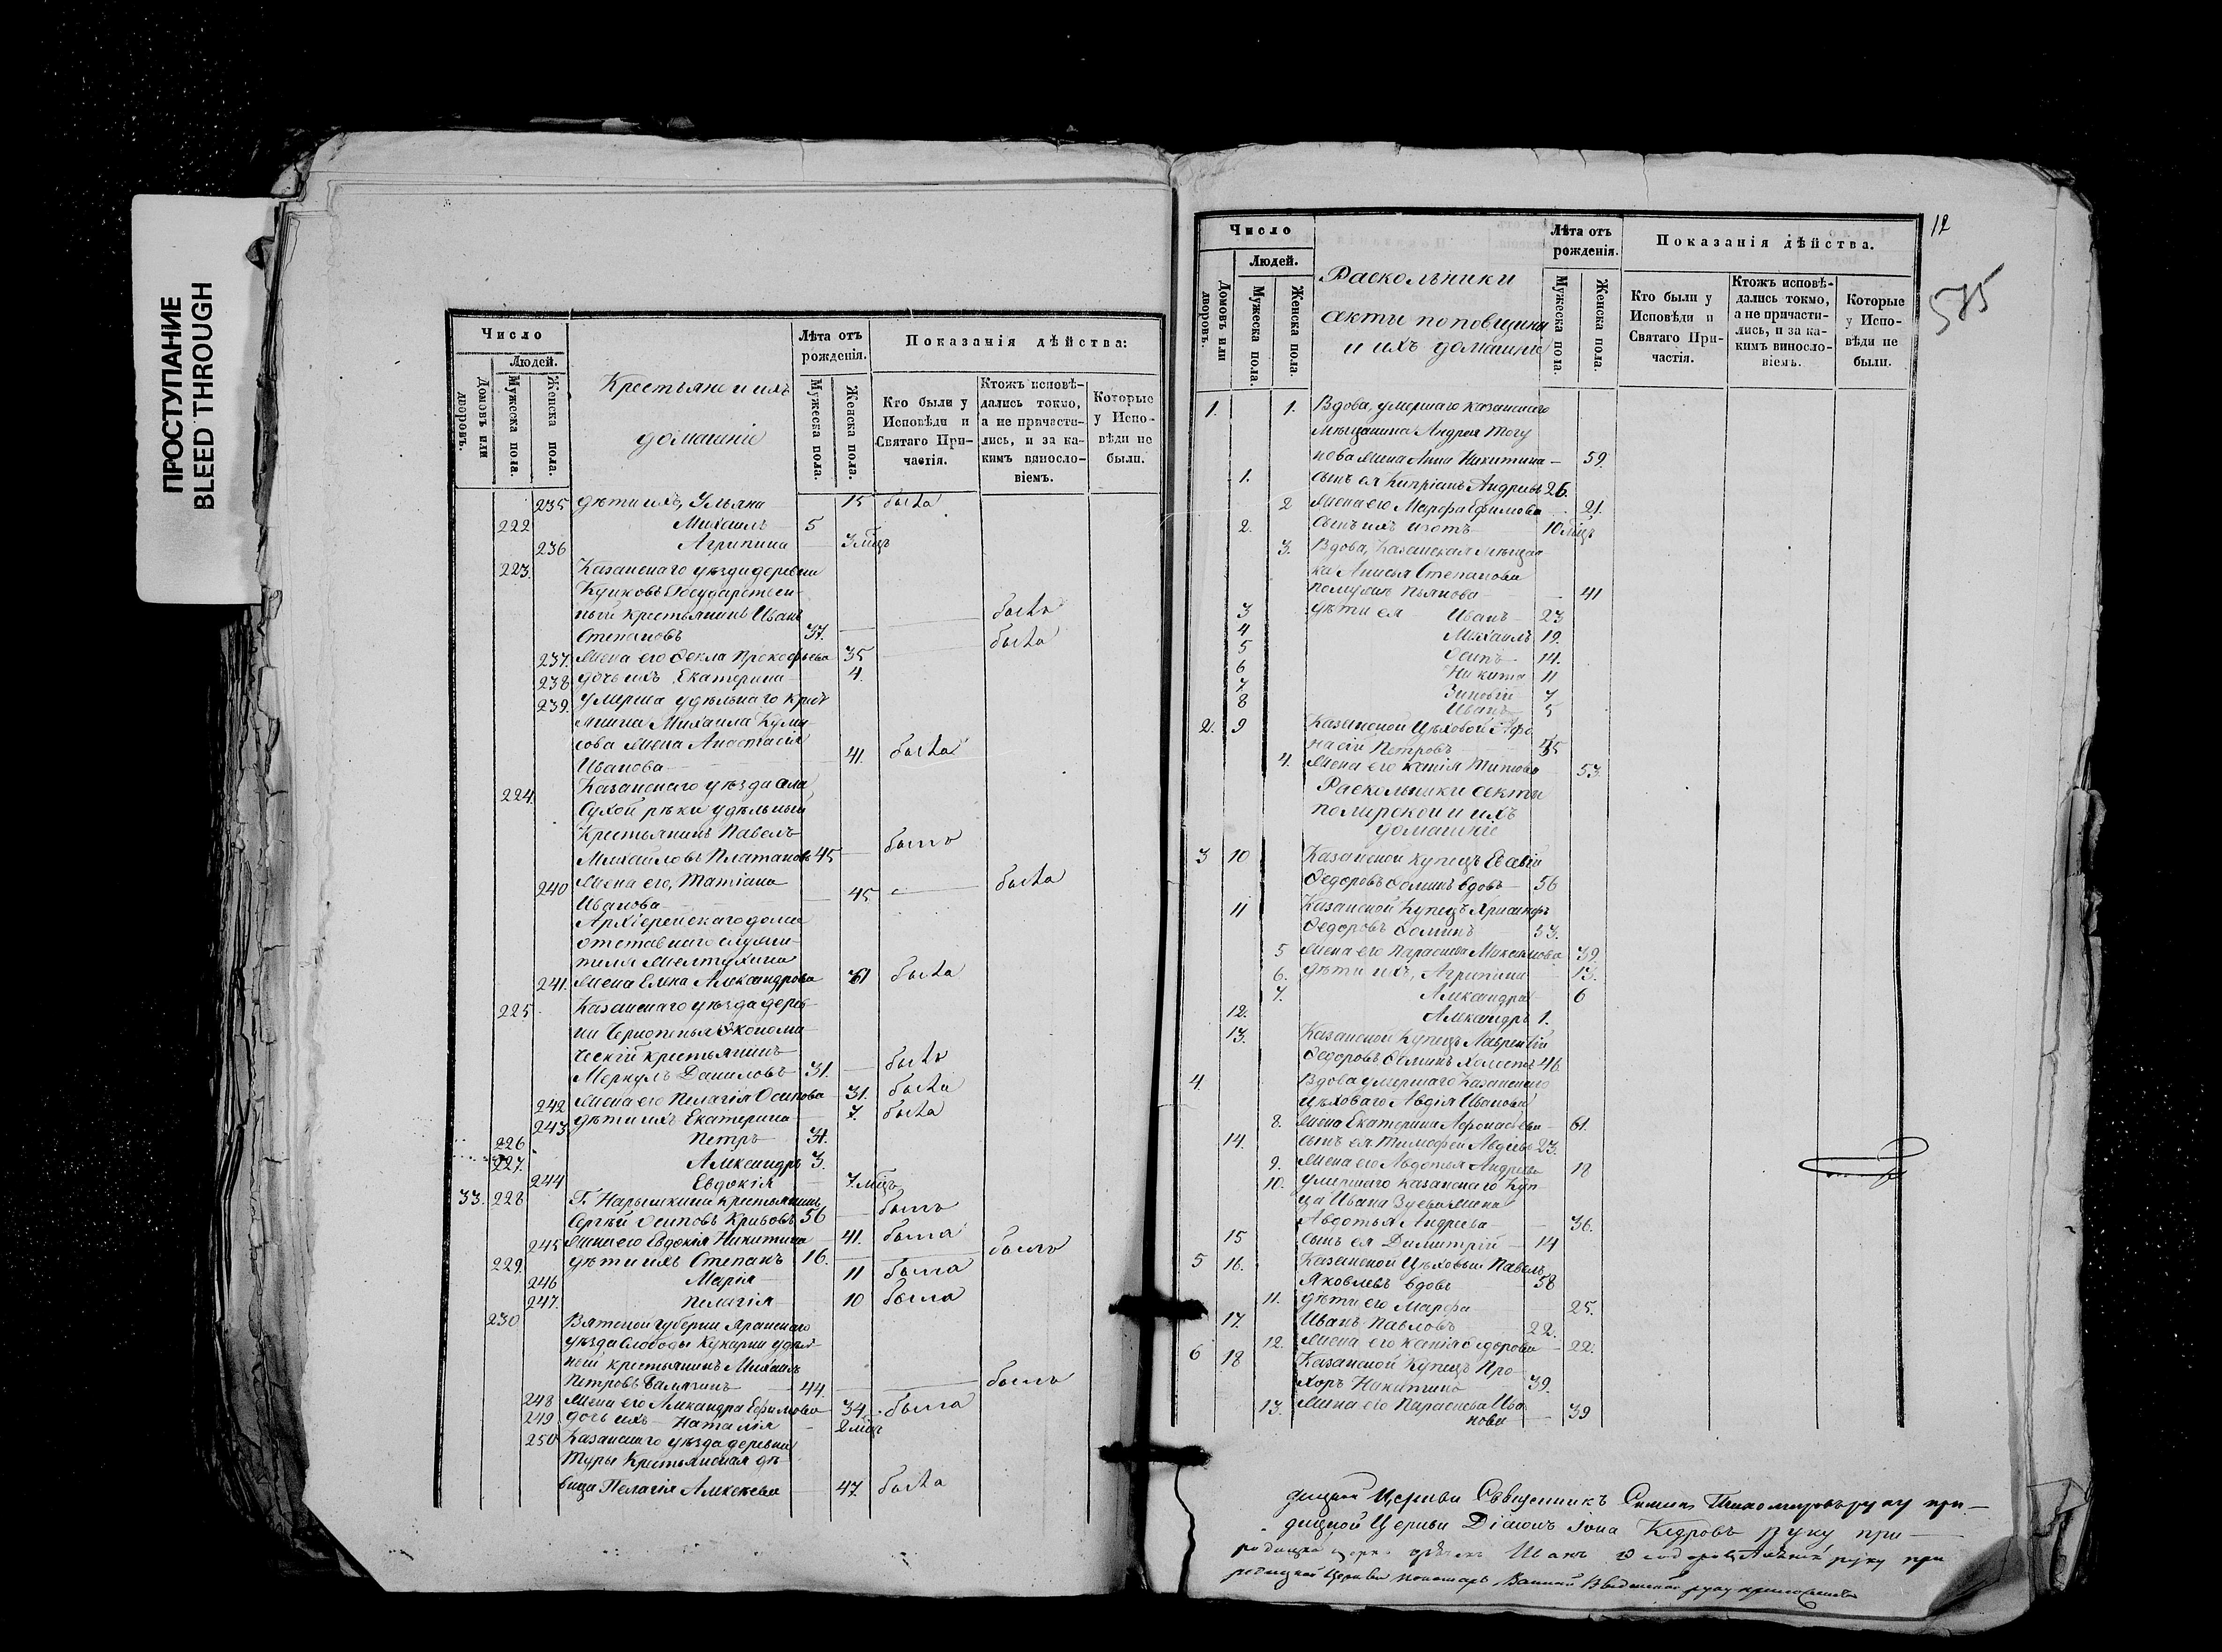 ПРОСТУПАНИЕ
BLEED THROUGH
Число
Людей.
Домовъ или дворовъ.
Мужеска пола.
Женска пола.
Крестьяне и ихъ
домашніе
Лѣта отъ рожденія.
Мужеска пола.
Женска пола.
Показанія дѣйства:
Кто были у Исповѣди и Святаго Причастія.
Ктожъ исповѣдались токмо, а не причастились, и за какимъ винословіемъ.
Которые у Исповѣди не были.
235 дѣти ихъ, Ульяна 15 была
222 Михаилъ 5
236 Агрипина 3 мѣц
223. Казанскаго уѣзда деревни
Куиковъ Государствен-
ный крестьянинъ Иванъ былъ
Степановъ 37.
237. Жена его Фекла Прокофьева 35 была
238 дочь ихъ Екатерина 4.
239. умерша удѣльнаго крест
янина Михаила
жена Анастасія
Иванова 41. была
224. Казанскаго уѣзда села
Сухой рѣки удѣльный
Крестьянинъ Павелъ
Михайловъ Платоновъ 45 былъ
240 Жена его, Татіана
Иванова 45 была
Архіерейскаго дома
отставнаго служи-
теля
241. Жена Елена Александрова 61 была
225. Казанскаго уѣзда дерев-
ни Чернопенья Экономи-
ческій крестьянинъ
Меркулъ Даниловъ 31. былъ
242 Жена его Пелагія Осипова 31. была
243 дѣти ихъ Екатерина 7. была
226 Петръ
227. Александръ 3.
244 Евдокія 7. мѣц
33. 228 Г. Нарышкина крестьянинъ
Сергѣй Осиповъ Кривовъ 56 былъ
245 Жена его Евдокія Никитина 41. была
229. дѣти ихъ Степанъ 16. былъ
246 Марія 11 была
247. Пелагія 10 была
230 Вятской губерніи Яранскаго
уѣзда Слободы Кукарки удѣл-
ной крестьянинъ Михаилъ
Петровъ 44. былъ
248 Жена его Александра Ефимова 34 была
249 дочь ихъ Наталія 2 мѣц
250 Казанскаго уѣзда деревни
Туры Крестьянская дѣ-
вица Пелагія Алексеева 47 была
12
575
Число
Людей.
Домовъ или дворовъ.
Мужеска пола.
Женска пола.
Раскольники
секты поповщины
и ихъ домашніе
Лѣта отъ рожденія.
Мужеска пола.
Женска пола.
Показанія дѣйства.
Кто были у Исповѣди и Святаго Причастія.
Ктожъ исповѣдались токмо, а не причастились, и за какимъ винословіемъ.
Которые у Исповѣди не были.
1. 1. Вдова, умершаго казанскаго
мѣщанина Андрея
жена Анна Никитина 59.
1. сынъ ея Кипріанъ Андреевъ 26.
2 Жена его Марфа Ефимова 21.
2. сынъ ихъ Изотъ 10 мѣцъ
3. Вдова, Казанская мѣщан
ка Анисья Степанова
41
3 дѣти ея Иванъ 23
4 Михаилъ 19.
5 Осипъ 14.
6 Никита 11
7 Зиновій 7
8 Иванъ 5
2. 9 Казанской Цѣховой Афо
насій Петровъ
4. Жена его Ксенія Титова 53.
Раскольники секты
поморской и ихъ
домашніе
3 10 Казанской купецъ Евсевій
Федоровъ Фоминъ вдовъ 56
11 Казанской Купецъ
Федоровъ Фоминъ 53.
5 Жена его Параскева Максимова 39.
6. дѣти ихъ, Агрипина 13.
7. Александра 6
12. Александръ 1.
13. Казанской Купецъ Лаврентій
Федоровъ Фоминъ холостъ 46
4. Вдова умершаго Казанскаго
цѣховаго Авдія Иванова
8. Жена Екатерина Афонасьева 61.
14. сынъ ея Тимофей Авдѣевъ 23.
9. Жена его Авдотья Андреева 18
10. умершаго казанскаго куп-
ца Ивана Зуева жена
Авдотья Андреева 36.
15 сынъ ея Димитрій 14
5 16. Казанской Цѣховый Павелъ
Яковлевъ вдовъ 58
11. дѣти его Марфа 25.
17. Иванъ Павловъ 22.
12. Жена его Ксенія Федорова 22.
6 18 Казанской Купецъ Про-
хоръ Никитинъ 39.
13. Жена его Параскева Ива
нова 39
Церкви Священникъ Симеонъ Тихомировъ руку при-
Церкви Діаконъ Іона Кедровъ руку при-
Иванъ руку при
Церкви пономарь Василій Введенскій руку приложилъ